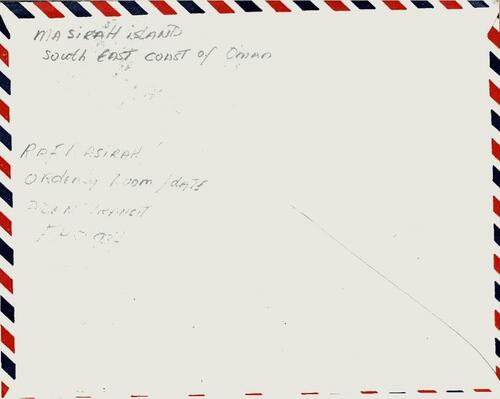 MASIRAH ISLAND
SOUTH EAST COAST of OMAN
RAF MASIRAH
ORDERLY ROOM / DATE
TRANSIT